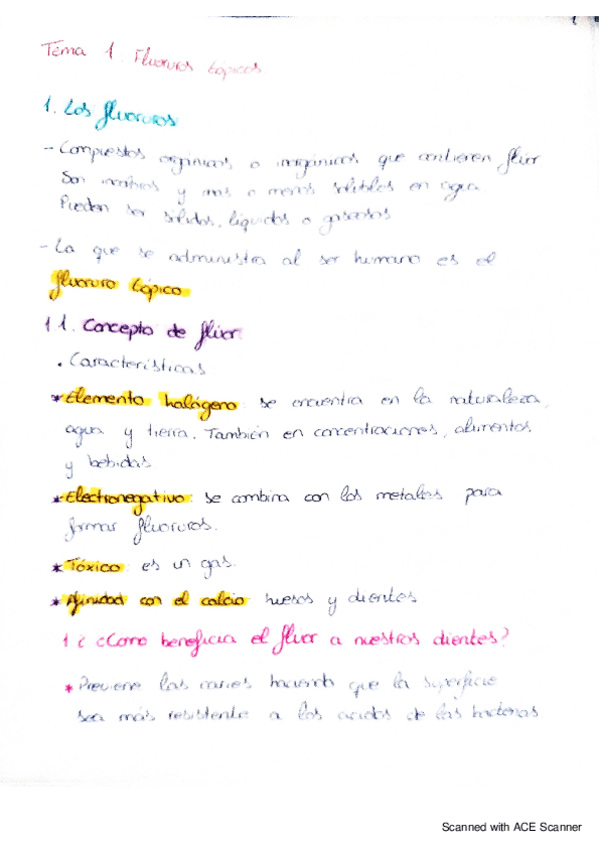 Tema 1. Fluoruros tópicos
1. Los fluoruros
- Compuestos orgánicos o inorgánicos que contienen flúor
Son y mas o menos solubles en agua
Pueden ser sólidos, líquidos o gaseosos
- La que se administra al ser humano es el
fluoruro tópico
1.1. Concepto de flúor
. Características
* Elemento halógeno: se encuentra en la naturaleza,
agua y tierra. También en concentraciones, alimentos
y bebidas
* Electronegativo: se combina con los metales para
formar fluoruros.
* Tóxico: es un gas.
* Afinidad con el calcio: huesos y dientes
1 ¿ ¿Cómo beneficia el flúor a nuestros dientes?
* Previene las caries haciendo que la superficie
sea más resistente a los ácidos de las bacterias
Scanned with ACE Scanner